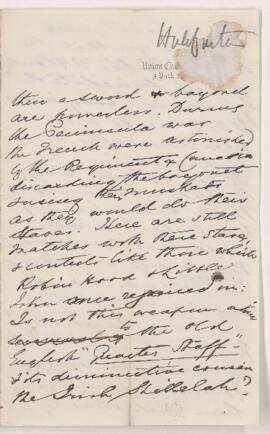 Union Clu
then a sword & bayonet
are powerless. During
the Peninsula war
the French were astonished
of the Regiment
discarding the bayonet
& using their muskets
as they would do their
staves. Here are still
matches with these staves
& contests like those which
Robin Hood & Little
John once rejoiced in:
Is not this weapon akin
to the old
English "Quarter Staff"
& its diminutive cousin
the Irish Shillelah?